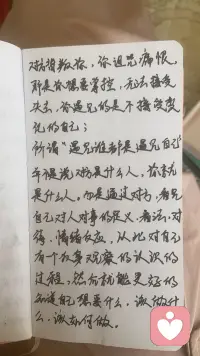 对方背叛你，你遇见痛恨，
那是你想要掌控，无法接受
失去，你遇见的是不接受变
化的自己；
所谓“遇见谁都是遇见自己”
并不是说对方是什么人，你就
是什么人。而是通过对方，看见
自己对人对事的定义、看法、对
待、情绪反应，从此对自己
有个反复观察的认识的
过程，然后就能更好的
知道自己想要什么，该做什
么，该如何做。